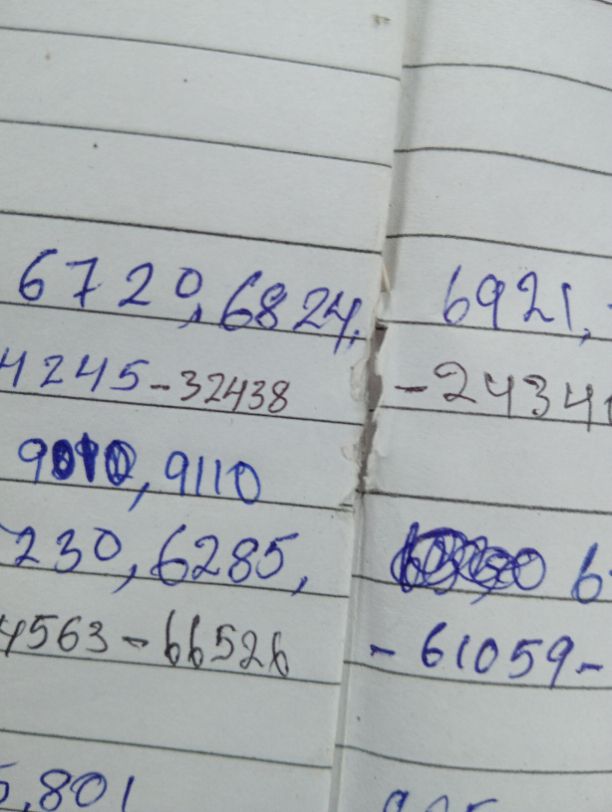 6720, 6824, 6921,
4245-32438 -24341
9010, 9110
230, 6285, 6
4563-66526 -61059-
5,801